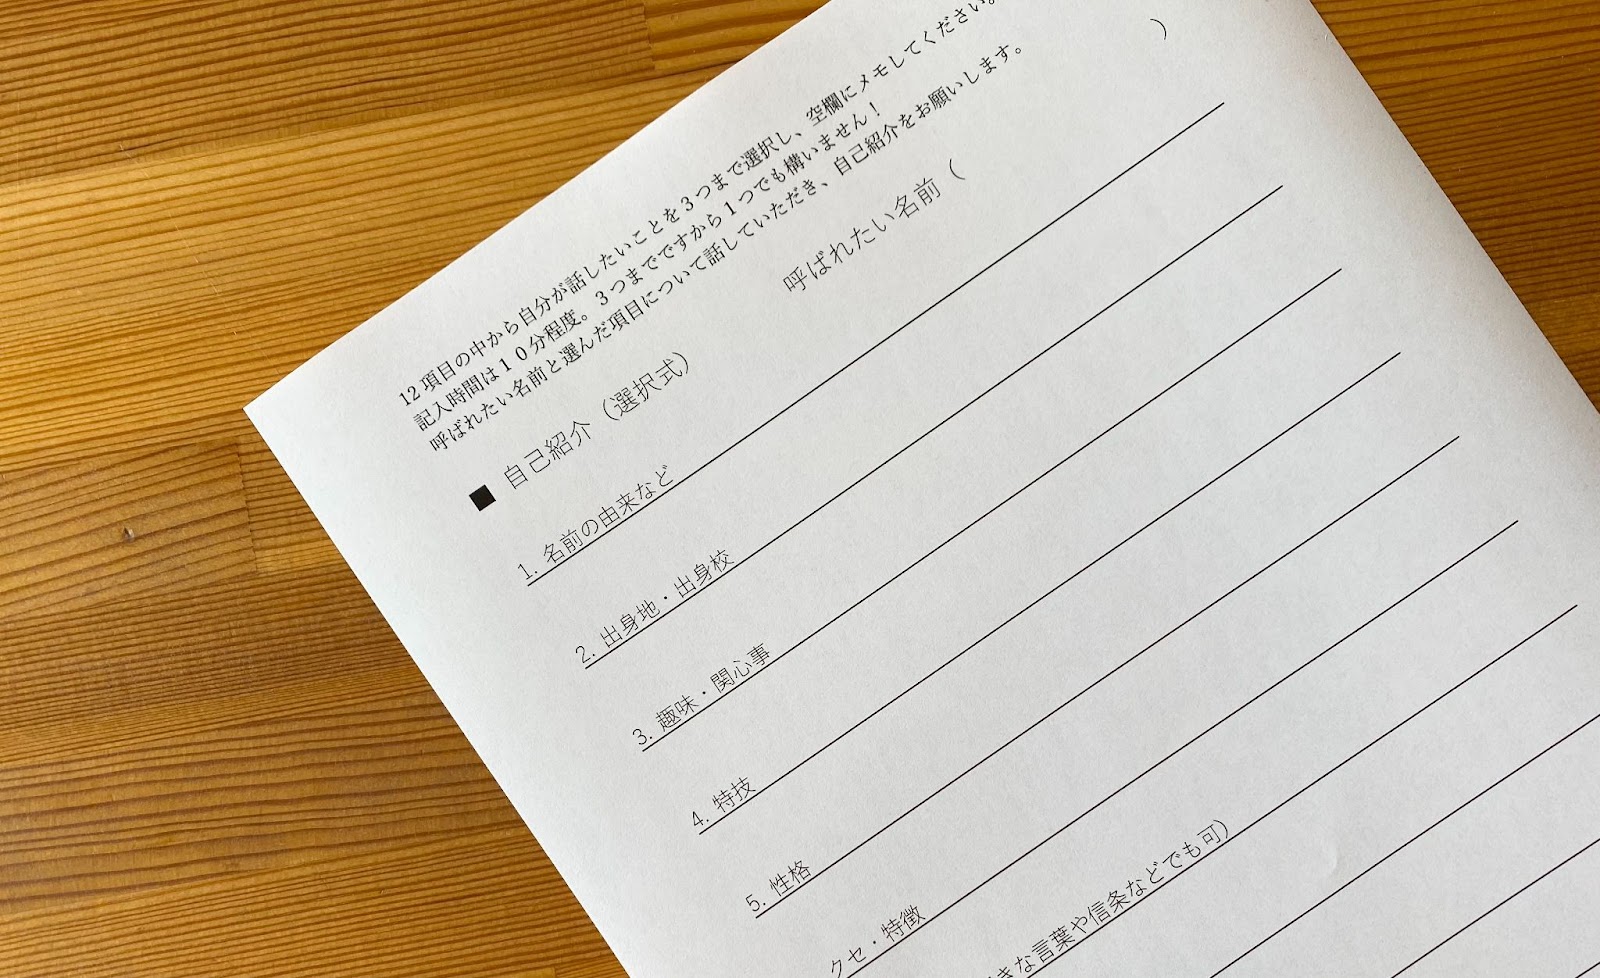 12項目の中から自分が話したいことを３つまで選択し、空欄にメモしてください。
記入時間は１０分程度。３つまでですから１つでも構いません！
呼ばれたい名前と選んだ項目について話していただき、自己紹介をお願いします。
■ 自己紹介（選択式） 呼ばれたい名前（ ）
1. 名前の由来など
2. 出身地・出身校
3. 趣味・関心事
4. 特技
5. 性格
クセ・特徴
きな言葉や信条などでも可）